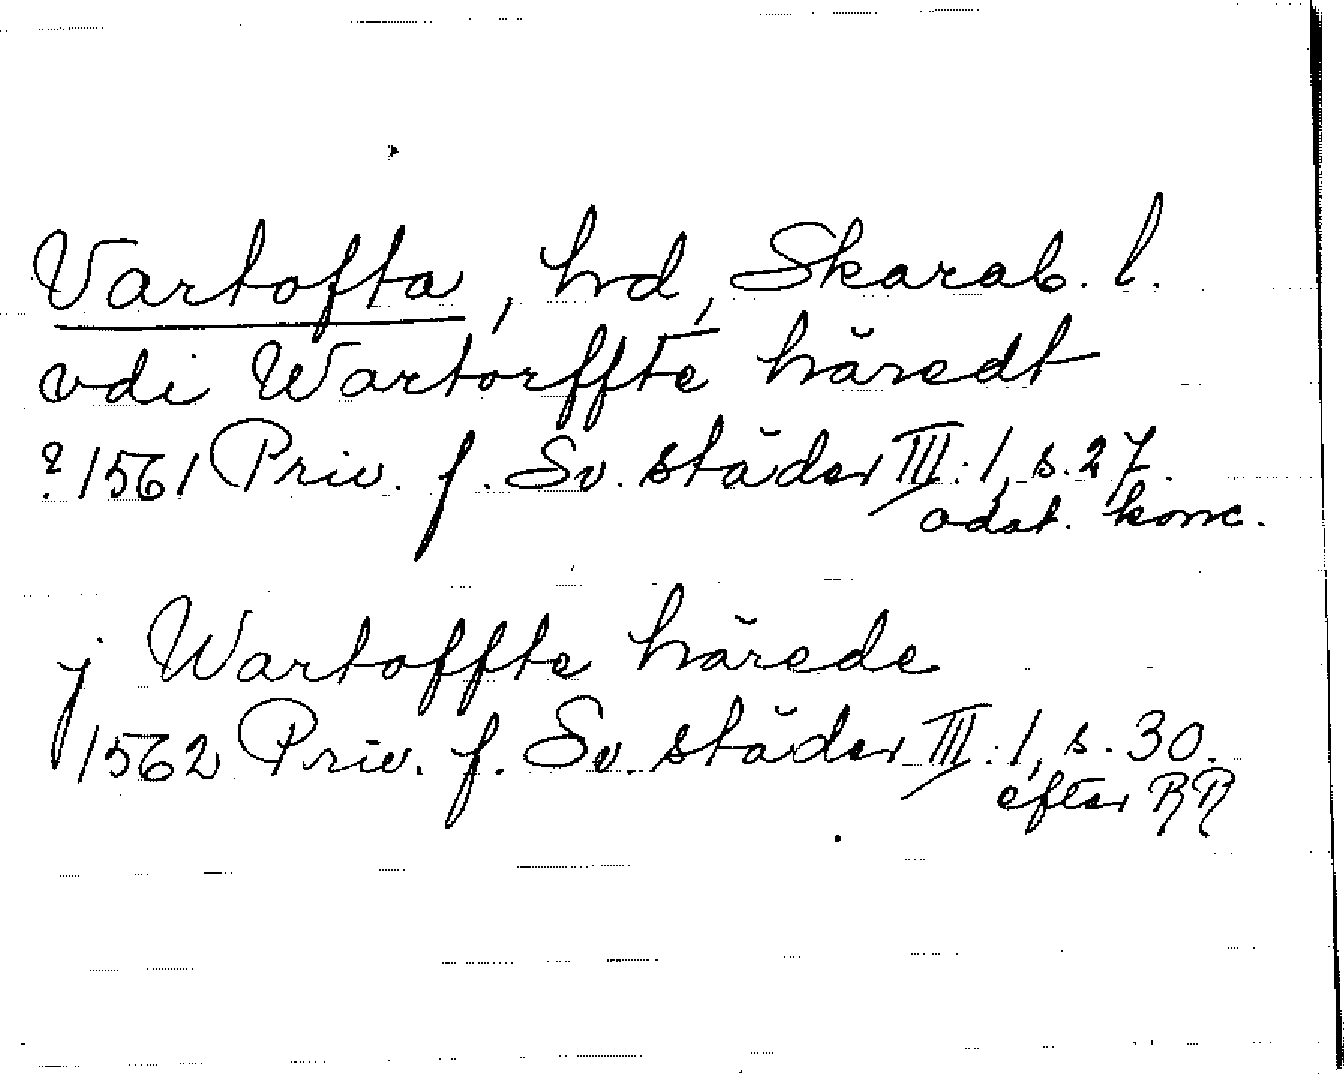 Vartofta, hd, Skarab. l.
vdi Wartorffte häredt
? 1561 Priv. f. Sv. städer III:1, s. 27.
odat. konc.
j Wartoffte härede
1562 Priv. f. Sv. städer III:1, s. 30.
efter RR